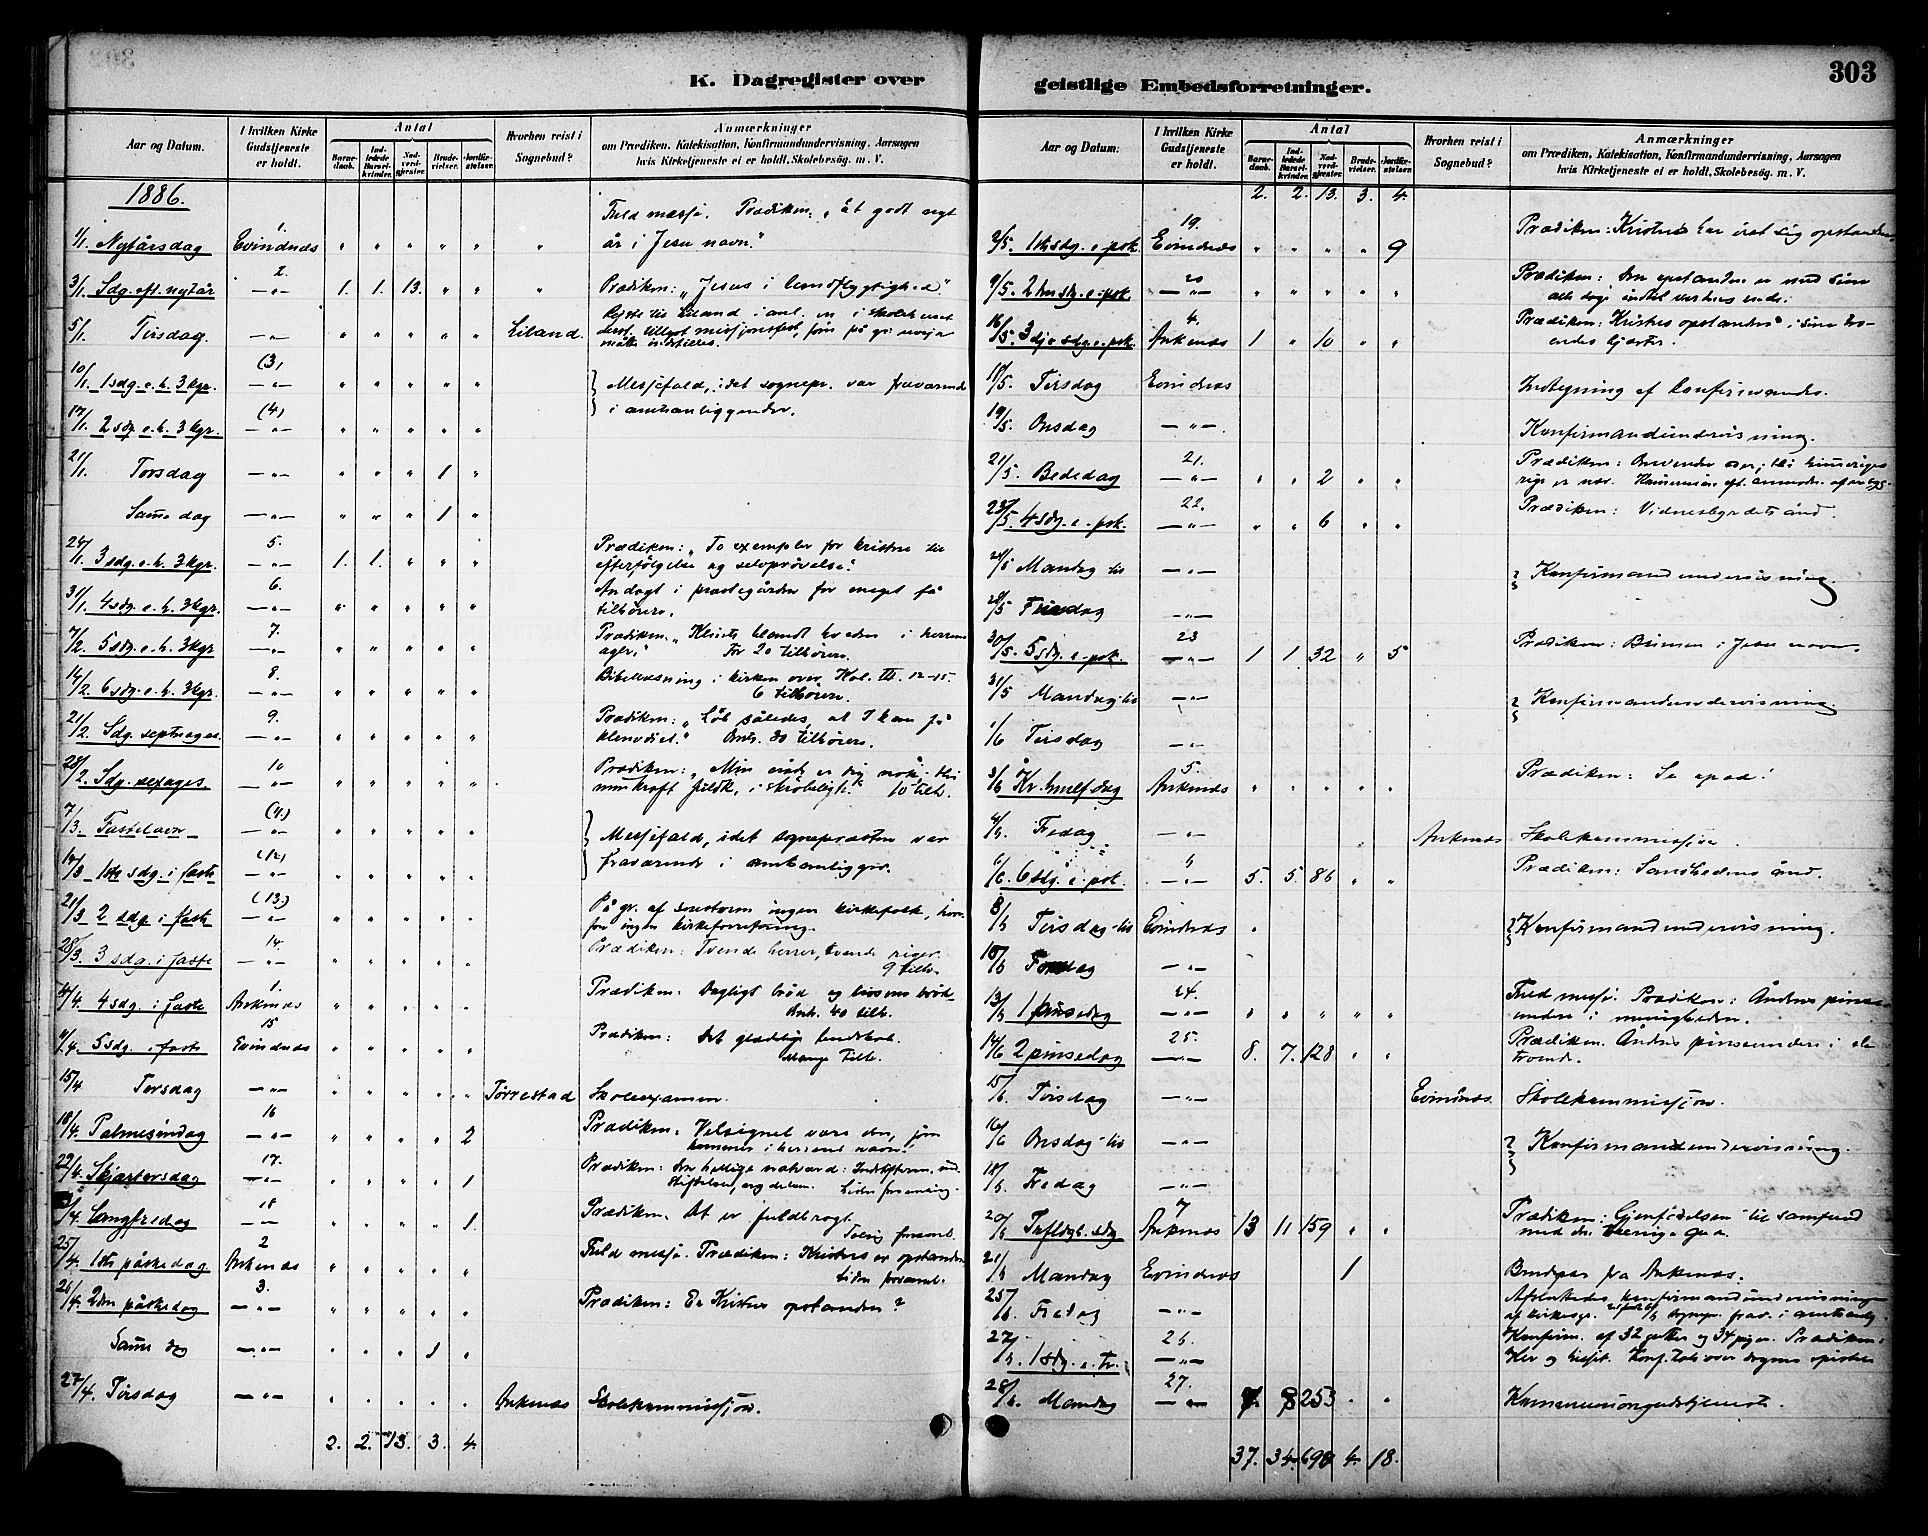 K. Dagregister over
geistlige Embedsforretninger.
303
Aar og Datum.
I hvilken Kirke Gudstjeneste er holdt.
Antal
Barnedaab.
Indledede Barselkvinder.
Nadverdgjester.
Brudevielser.
Jordfæstelser.
Hvorhen reist i Sognebud?
Anmærkninger
om Prædiken, Katekisation, Konfirmandundervisning, Aarsagen
hvis Kirketjeneste ei er holdt, Skolebesög m. V.
1886.
Fuld messe. Prædiken: "Et godt nyt
1/1. Nytårsdag Evindnæs 1. " " " " " " år i Jesu navn."
3/1. Sdg. eft. nytår —"— 2. 1. 1. 13. " " " Prædiken: "Jesus i landflygtighed."
5/1. Tirsdag. —"— Liland.
10/1. 1 sdg. e. h. 3 kgr. (3) —"— " " " " " Messefald, idet sognepr. var fraværende
17/1. 2 sdg. e. h. 3 kgr. (4) —"— " " " " " i amtsanliggender.
21/1. Torsdag —"— " " " 1 "
Samme dag —"— " " " 1 "
24/1. 3 sdg. e. h. 3 kgr. 5. —"— 1. 1. " " " Prædiken: "To exempler for kristne til
efterfølgelse og selvprøvelse."
31/1. 4 sdg. e. h. 3 kgr. 6. —"— " " " " " Andagt i præstegården for meget få
tilhörere.
7/2. 5 sdg. e. h. 3 kgr. 7. —"— " " " " " Prædiken: "Klinte blandt hveden i herrens
ager." For 20 tilhörere.
14/2. 6 sdg. e. h. 3 kgr. 8. —"— " " " " " Bibellæsning i kirken over Kol. III. 12-15.
6 tilhörere.
21/2. Sdg. septuages. 9. —"— " " " " " Prædiken: "Løb således, at I kan få
klenodiet." Omtr. 30 tilhörere.
28/2. Sdg. sexages. 10 —"— " " " " " Prædiken: "Min nåde er dig nok, thi
min kraft fuldk. i skröbeligh." 10 tilh.
7/3. Fastelavn —"— " " " " " Messefald, idet sognepræsten var
14/3. 1ste sdg. i faste (12) —"— " " " " " fraværende i amtsanliggr.
21/3. 2 sdg. i faste (13.) —"— " " " " " På gr. af snestorm ingen kirkefolk, hvor-
for ingen kirkeforretning.
28/3. 3 sdg. i faste 14. —"— " " " " " Prædiken: Tvende herrer, tvende riger.
9 tilh.
4/4. 4 sdg. i faste Ankenæs 1. " " " " " Prædiken: Dagligt bröd og livsens bröd.
Ank. 40 tilh.
11/4. 5 sdg. i faste Evindnæs 15 " " " " " Prædiken: Det glædelige budskab.
Mange tilh.
15/4 Torsdag —"— " " " " " Tørrestad Skoleexamen.
18/4. Palmesöndag 16 —"— " " " " 2 Prædiken: Velsignet være den, som
kommer i herrens navn!
22/4. Skjærtorsdag 17. —"— " " " " 1 Prædiken: Den hellige nadverd: Indstifteren, ind-
stiftelsen, og delen. Liden forsamling.
/4. Langfredag 18 —"— " " " " 1. Prædiken: Det er fuldbragt.
Talrig forsaml.
25/4. 1ste påskedag Ankenæs 2 " " " " " Fuld messe. Prædiken: Kristus er opstanden
Liden forsaml.
26/4. 2den påskedag 3. —"— " " " " " Prædiken: Er Kristus opstanden?
Samme dag —"— " " " 1 "
27/4. Tirsdag —"— " " " " " Ankenæs Skolekommissjon.
2. 2. 13. 3. 4.
Aar og Datum.
I hvilken Kirke Gudstjeneste er holdt.
Antal
Barnedaab.
Indledede Barselkvinder.
Nadverdgjester.
Brudevielser.
Jordfæstelser.
Hvorhen reist i Sognebud?
Anmærkninger
om Prædiken, Katekisation, Konfirmandundervisning, Aarsagen
hvis Kirketjeneste ei er holdt, Skolebesög m. V.
2. 2. 13. 3. 4.
2/5. 1ste sdg. e. påk. Evindnæs 19. " " " " 9 Prædiken: Kristus har vist sig opstanden.
9/5. 2den sdg. e. påk. 20 —"— " " " " " Prædiken: Den opstandne er med sine
alle dage indtil verdens ende.
16/5. 3dje sdg. e. påk. Ankenæs 4. 1 " 10 " " Prædiken: Kristus opstanden i sine tro-
endes hjerter.
18/5. Tirsdag Evindnæs Indtegning af konfirmander.
19/5. Onsdag —"— Konfirmandundervisning.
21/5. Bededag 21. —"— " " 2 " " Prædiken: Omvender eder, thi himmeriges
rige er nær.
23/5. 4 sdg. e. påk. 22. —"— " " 6 " " Prædiken: Vidnesbyrdets ånd.
24/5 Mandag til —"— Konfirmandundervisning.
28/5 Fredag —"—
30/5. 5 sdg. e. påk. 23 —"— 1 1. 32 " 5 Prædiken: Bönnen i Jesu navn.
31/5 Mandag til —"— Konfirmandundervisning.
1/6 Tirsdag —"—
3/6 Kr. himlf. dag Ankenæs 5. " " " " " Prædiken: Se opad!
4/6. Fredag —"— Ankenæs Skolekommissjon.
6/6. 6 sdg. e. påk. —"— 5. 5. 86 " " Prædiken: Sandhedens ånd.
8/6 Tirsdag til Evindnæs Konfirmandundervisning.
—"—
13/6 1 pinsedag 24. —"— " " " " " Fuld messe. Prædiken: Åndens pinse-
under i menigheden.
14/6 2 pinsedag 25. —"— 8. 7. 128 " " Prædiken: Åndens pinseunder i de
troende.
15/6. Tirsdag —"— Evindnæs. Skolekommissjon.
16/6 Onsdag til —"— Konfirmandundervisning.
18/6. Fredag —"—
20/6 Trefoldigh. sdg Ankenæs 7 13 11 159 " " Prædiken: Gjenfödelsen til samfund
med den treenige Gud.
21/6 Mandag Evindnæs 1 Brudepar fra Ankenæs.
25/6 Fredag —"— Afsluttedes konfirmandundervisningen
27/6. 1 sdg. e. tr. 26. —"— Konfirm. af 32 gutter og 34 piger. Prædiken:
28/6. Mandag 27. —"— 253 " " Kommuniongudstjeneste.
37. 34. 698 4. 18.